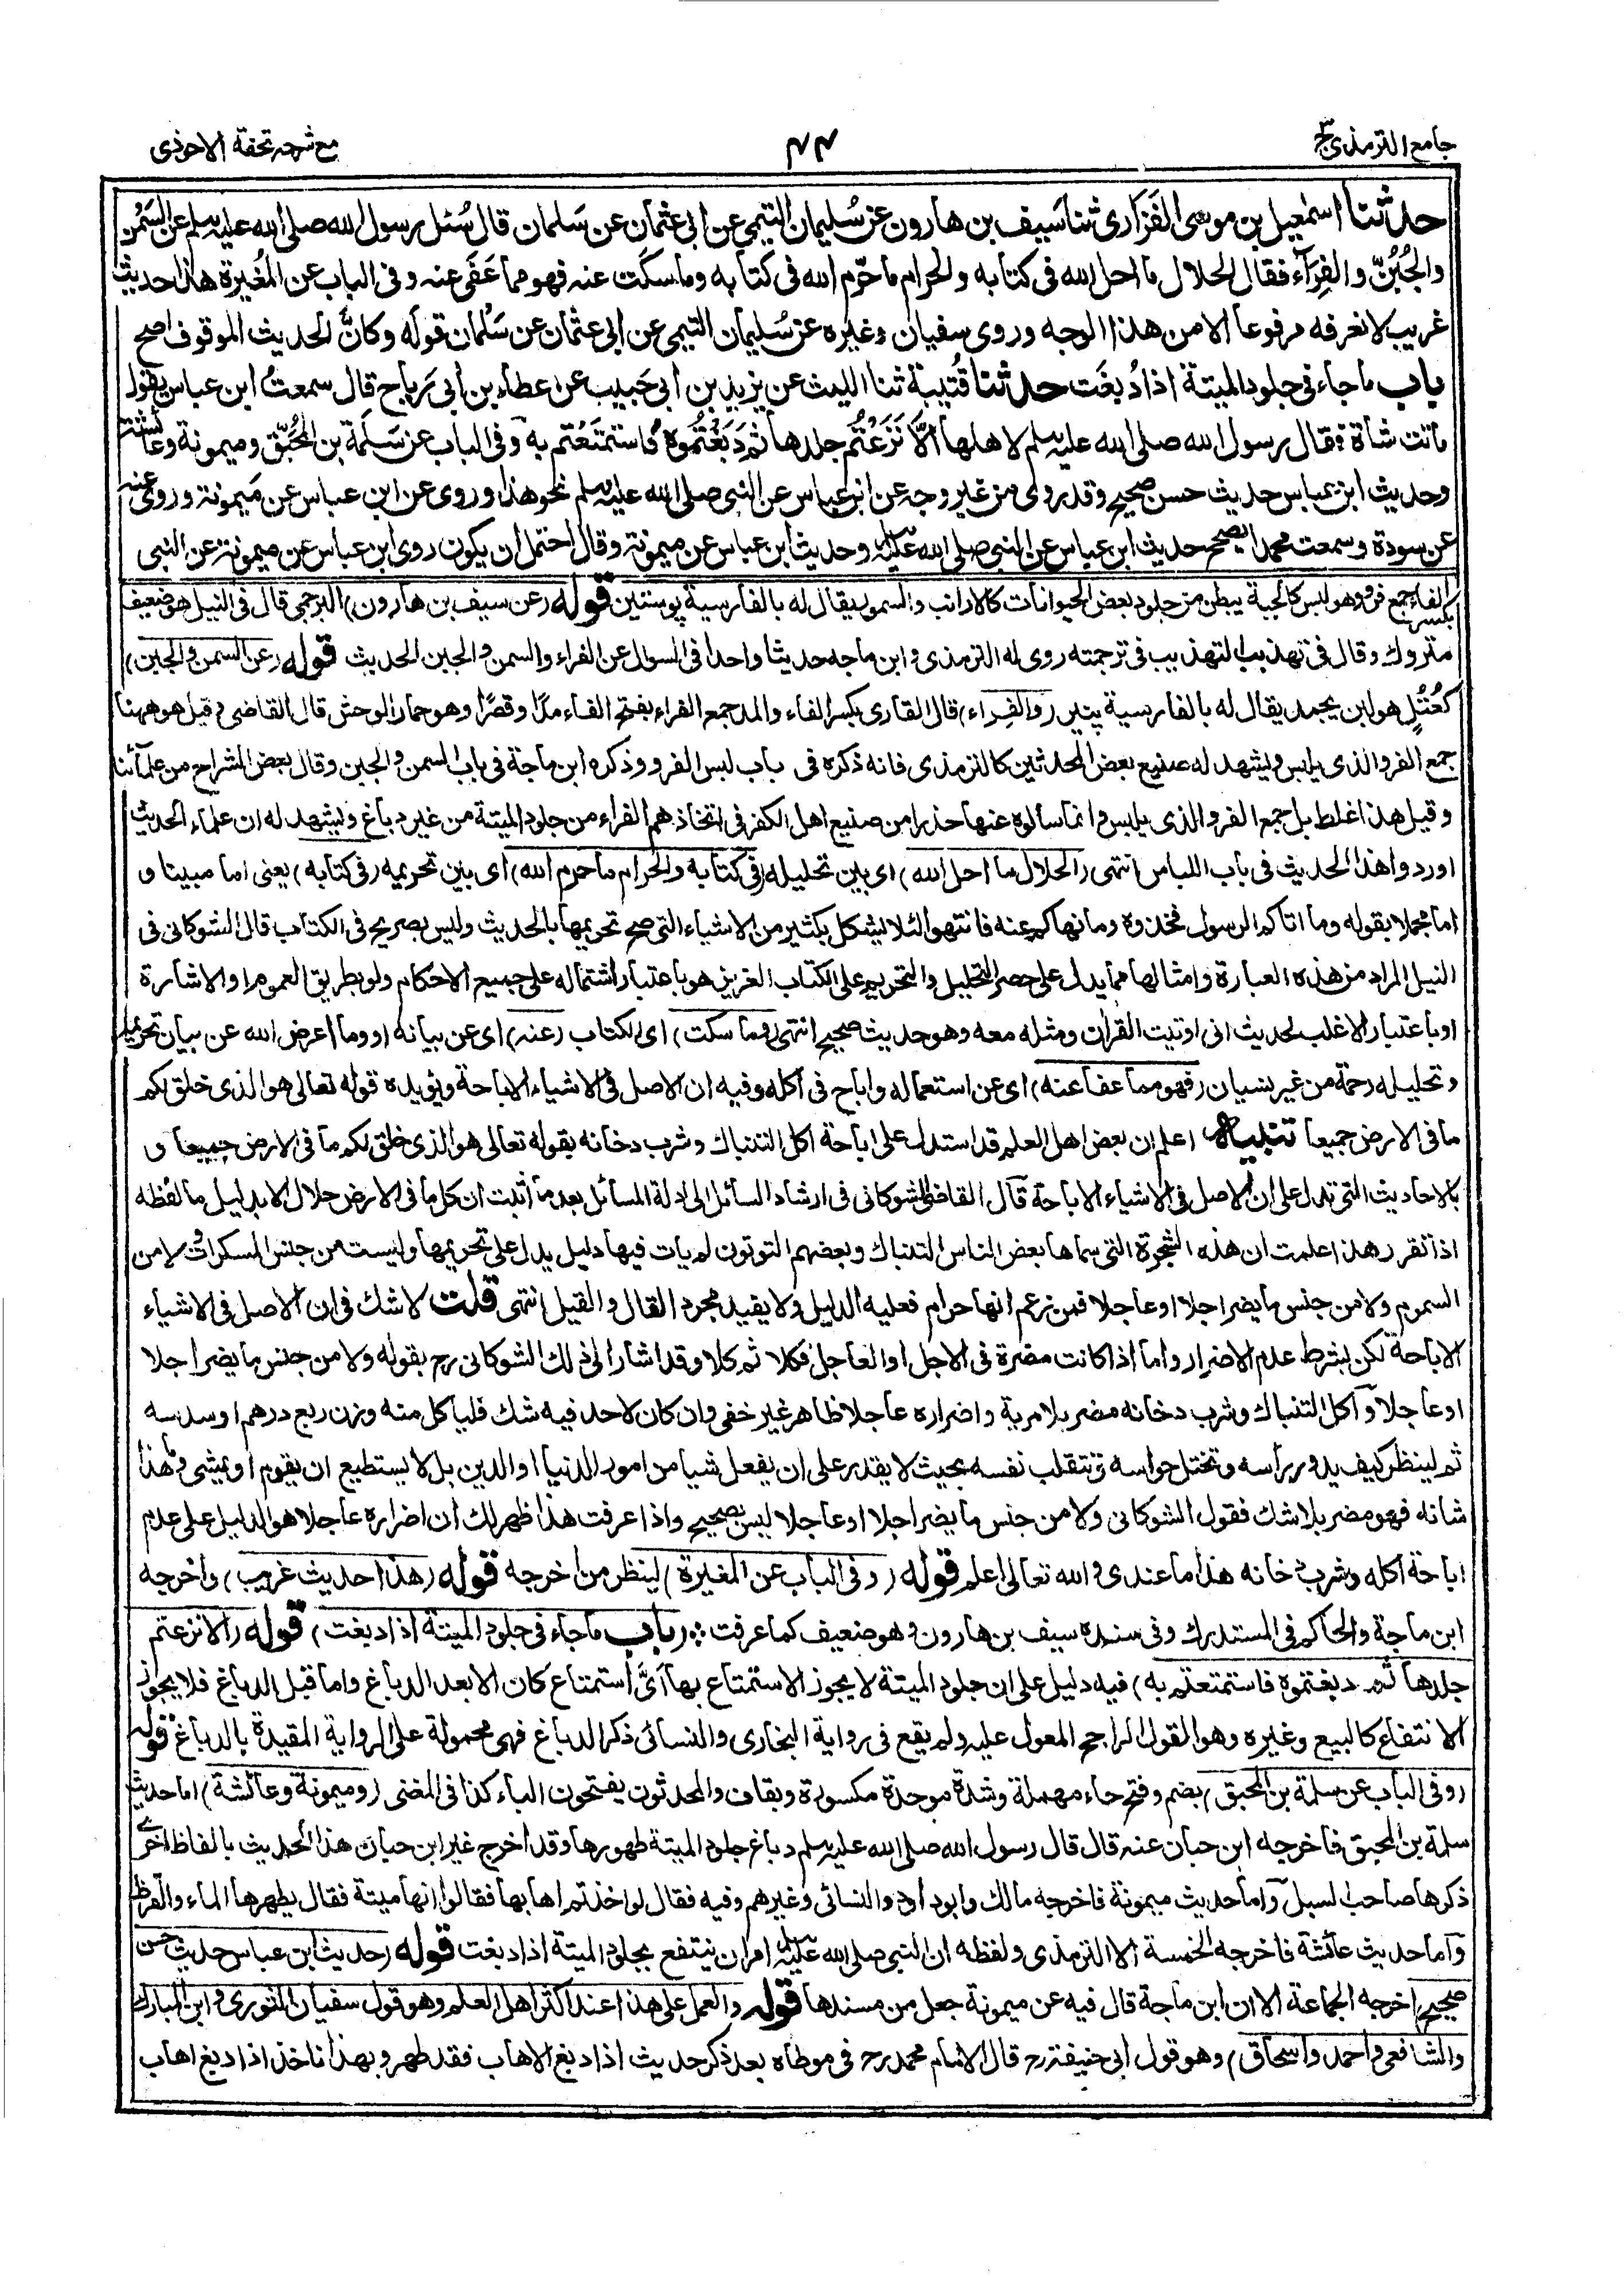 جامع الترمذی ج ۳
۴۴
مع شرحہ تحفة الاحوذی
حدثنا اسمٰعیل بن موسی الفَزَاری ثنا سَیف بن ھارون عن سُلیمان التیمی عن ابی عثمان عن سَلمان قال سُئل رسول الله صلی الله علیہ وسلم عن السَمْن
والجُبُنّ والفِرَآء فقال الحلال ما احل الله فی کتابه والحرام ما حرّم الله فی کتابه وما سکَت عنه فهو مما عَفَی عنه وفی الباب عن المُغیرة هذا حدیث
غریب لا نعرفه مرفوعا الا من هذا الوجه وروی سفیان وغیره عن سُلیمان التیمی عن ابی عثمان عن سَلْمان قوله وکانَّ الحدیث الموقوف اصح
باب ما جاء فی جلود المیتة اذا دُبغَت حدثنا قُتیبة ثنا اللیث عن یزید بن ابی حَبیب عن عطاء بن ابی رَباح قال سمعتُ ابن عباس یقول
ماتت شاة فقال رسول الله صلی الله علیہ وسلم لاهلها ألَّا نَزَعْتُم جلدها ثم دَبَغْتُمُوه فاستمتَعْتم به وفی الباب عن سَلَمة بن المُحَبّق ومیمونة وعائشة
وحدیث ابن عباس حدیث حسن صحیح وقد روی من غیر وجه عن ابن عباس عن النبی صلی الله علیہ وسلم نحو هذا وروی عن ابن عباس عن مَیمونة وروی عنہ
عن سودة وسمعت محمدا یصحح حدیث ابن عباس عن النبی صلی الله علیہ وسلم وحدیث ابن عباس عن میمونة وقال احتمل ان یکون روی ابن عباس عن میمونة عن النبی
بکسر الفاء جمع فرو وهو لبس کالجبة یبطن من جلود بعض الحیوانات کالارانب والسمور یقال له بالفارسیة پوستین قوله (عن سیف بن هارون) البرجمی قال فی النیل هو ضعیف
متروک وقال فی تهذیب التهذیب فی ترجمته روی له الترمذی وابن ماجه حدیثا واحدا فی السوال عن الفراء والسمن والجبن الحدیث قوله (عن السمن والجبن)
کعُتُلٍّ هو لبن یجمد یقال له بالفارسیة پنیر (والفِراء) قال القاری بکسر الفاء والمد جمع الفراء بفتح الفاء مدًا وقصرًا وهو حمار الوحش قال القاضی وقیل هو ههنا
جمع الفرو الذی یلبس ویشهد له صنیع بعض المحدثین کالترمذی فانه ذکره فی باب لبس الفرو وذکره ابن ماجة فی باب السمن والجبن وقال بعض الشراح من علمآئنا
وقیل هذا غلط بل جمع الفرو الذی یلبس وانما سألوه عنها حذرا من صنیع اهل الکفر فی اتخاذهم الفراء من جلود المیتة من غیر دباغ ویشهد له ان علماء الحدیث
اوردوا هذا الحدیث فی باب اللباس انتهی (الحلال ما احل الله) ای بین تحلیله (فی کتابه والحرام ما حرم الله) ای بین تحریمه (فی کتابه) یعنی اما مبینا و
اما مجملا بقوله وما اتاکم الرسول فخذوه وما نهاکم عنه فانتهوا لئلا یشکل بکثیر من الاشیاء التی صح تحریمها بالحدیث ولیس بصریح فی الکتاب قال الشوکانی فی
النیل المراد من هذه العبارة وامثالها مما یدل علی حصر التحلیل والتحریم علی الکتاب العزیز هو باعتبار اشتماله علی جمیع الاحکام ولو بطریق العموم او الاشارة
او باعتبار الاغلب لحدیث انی اوتیت القران ومثله معه وهو حدیث صحیح انتهی (وما سکت) ای الکتاب (عنه) ای عن بیانه او وما اعرض الله عن بیان تحریمه
وتحلیله رحمة من غیر نسیان (فهو مما عفا عنه) ای عن استعماله واباح فی اکله وفیه ان الاصل فی الاشیاء الاباحة ویؤیده قوله تعالی هو الذی خلق لکم
ما فی الارض جمیعا تنبیه اعلم ان بعض اهل العلم قد استدل علی اباحة اکل التنباک وشرب دخانه بقوله تعالی هو الذی خلق لکم ما فی الارض جمیعا و
بالاحادیث التی تدل علی ان الاصل فی الاشیاء الاباحة قال القاضی الشوکانی فی ارشاد السائل الی ادلة المسائل بعد ما اثبت ان کل ما فی الارض حلال الا بدلیل ما لفظه
اذا تقرر هذا علمت ان هذه الشجرة التی سماها بعض الناس التنباک وبعضهم التوتون لم یات فیها دلیل یدل علی تحریمها ولیست من جنس المسکرات ولا من
السموم ولا من جنس ما یضر اجلا او عاجلا فمن زعم انها حرام فعلیه الدلیل ولا یفید مجرد القال والقیل انتهی قلت لا شک فی ان الاصل فی الاشیاء
الاباحة لکن بشرط عدم الاضرار واما اذا کانت مضرة فی الاجل او العاجل فکلا ثم کلا وقد اشار الی ذلک الشوکانی رح بقوله ولا من جنس ما یضر اجلا
او عاجلا واکل التنباک وشرب دخانه مضر بلا مریة واضراره عاجلا ظاهر غیر خفی وان کان لاحد فیه شک فلیاکل منه وزن ربع درهم او سدسه
ثم لینظر کیف یدور راسه وتختل حواسه وتتقلب نفسه بحیث لا یقدر علی ان یفعل شیا من امور الدنیا او الدین بل لا یستطیع ان یقوم او یمشی وما هذا
شانه فهو مضر بلا شک فقول الشوکانی ولا من جنس ما یضر اجلا او عاجلا لیس بصحیح واذا عرفت هذا ظهر لک ان اضراره عاجلا هو الدلیل علی عدم
اباحة اکله وشرب دخانه هذا ما عندی والله تعالی اعلم قوله (وفی الباب عن المغیرة) لینظر من اخرجه قوله (هذا حدیث غریب) واخرجه
ابن ماجة والحاکم فی المستدرک وفی سنده سیف بن هارون وهو ضعیف کما عرفت (باب ماجاء فی جلود المیتة اذا دبغت) قوله (الا نزعتم
جلدها ثم دبغتموه فاستمتعتم به) فیه دلیل علی ان جلود المیتة لا یجوز الاستمتاع بها ایَّ استمتاع کان الا بعد الدباغ واما قبل الدباغ فلا یجوز
الانتفاع کالبیع وغیره وهو القول الراجح المعول علیه ولم یقع فی روایة البخاری والنسائی ذکر الدباغ فهی محمولة علی الروایة المقیدة بالدباغ قوله
(وفی الباب عن سلمة بن المحبق) بضم وفتح حاء مهملة وشدة موحدة مکسورة وبقاف والمحدثون یفتحون الباء کذا فی المغنی (ومیمونة وعائشة) اما حدیث
سلمة بن المحبق فاخرجه ابن حبان عنه قال قال رسول الله صلی الله علیہ وسلم دباغ جلود المیتة طهورها وقد اخرج غیر ابن حبان هذا الحدیث بالفاظ اخری
ذکرها صاحب السبل واما حدیث میمونة فاخرجه مالک وابوداود والنسائی وغیرهم وفیه فقال لو اخذتم اهابها فقالوا انها میتة فقال یطهرها الماء والقرظ
واما حدیث عائشة فاخرجه الخمسة الا الترمذی ولفظه ان النبی صلی الله علیہ وسلم امر ان ینتفع بجلود المیتة اذا دبغت قوله (حدیث ابن عباس حدیث حسن
صحیح) اخرجه الجماعة الا ان ابن ماجة قال فیه عن میمونة جعل من مسندها قوله (والعمل علی هذا عند اکثر اهل العلم وهو قول سفیان الثوری وابن المبارک
والشافعی واحمد واسحاق) وهو قول ابی حنیفة رح قال الامام محمد رح فی موطاه بعد ذکر حدیث اذا دبغ الاهاب فقد طهر وبهذا ناخذ اذا دبغ اهاب